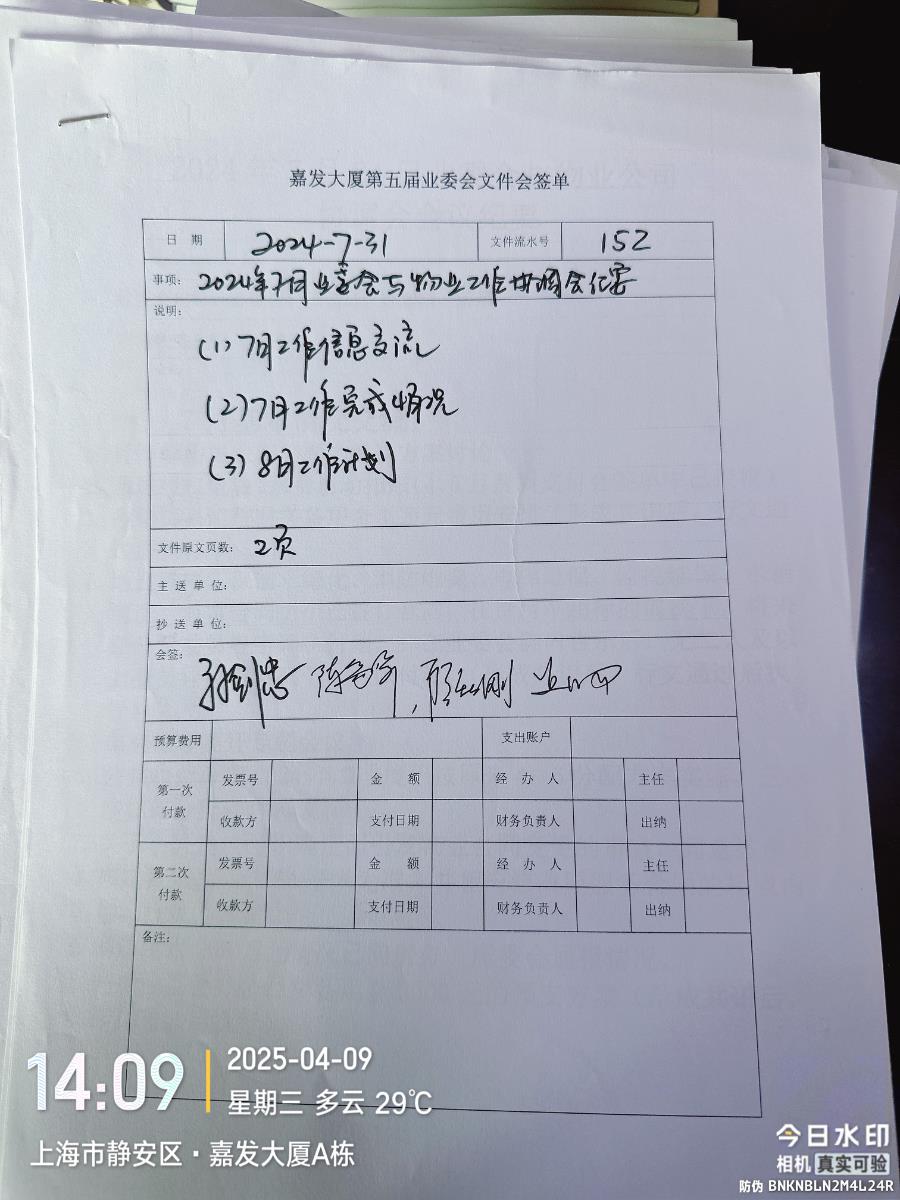 嘉发大厦第五届业委会文件会签单
日 期 2024-7-31 文件流水号 152
事项: 2024年7月业委会与物业工作协调会纪要
说明:
(1) 7月工作信息交流
(2) 7月工作完成情况
(3) 8月工作计划
文件原文页数: 2页
主 送 单 位:
抄 送 单 位:
会签:
预算费用 支出账户
第一次付款 发票号 金 额 经 办 人 主任
收款方 支付日期 财务负责人 出纳
第二次付款 发票号 金 额 经 办 人 主任
收款方 支付日期 财务负责人 出纳
备注:
14:09 2025-04-09
星期三 多云 29℃
上海市静安区·嘉发大厦A栋
今日水印
相机 真实可验
防伪 BNKNBLN2M4L24R